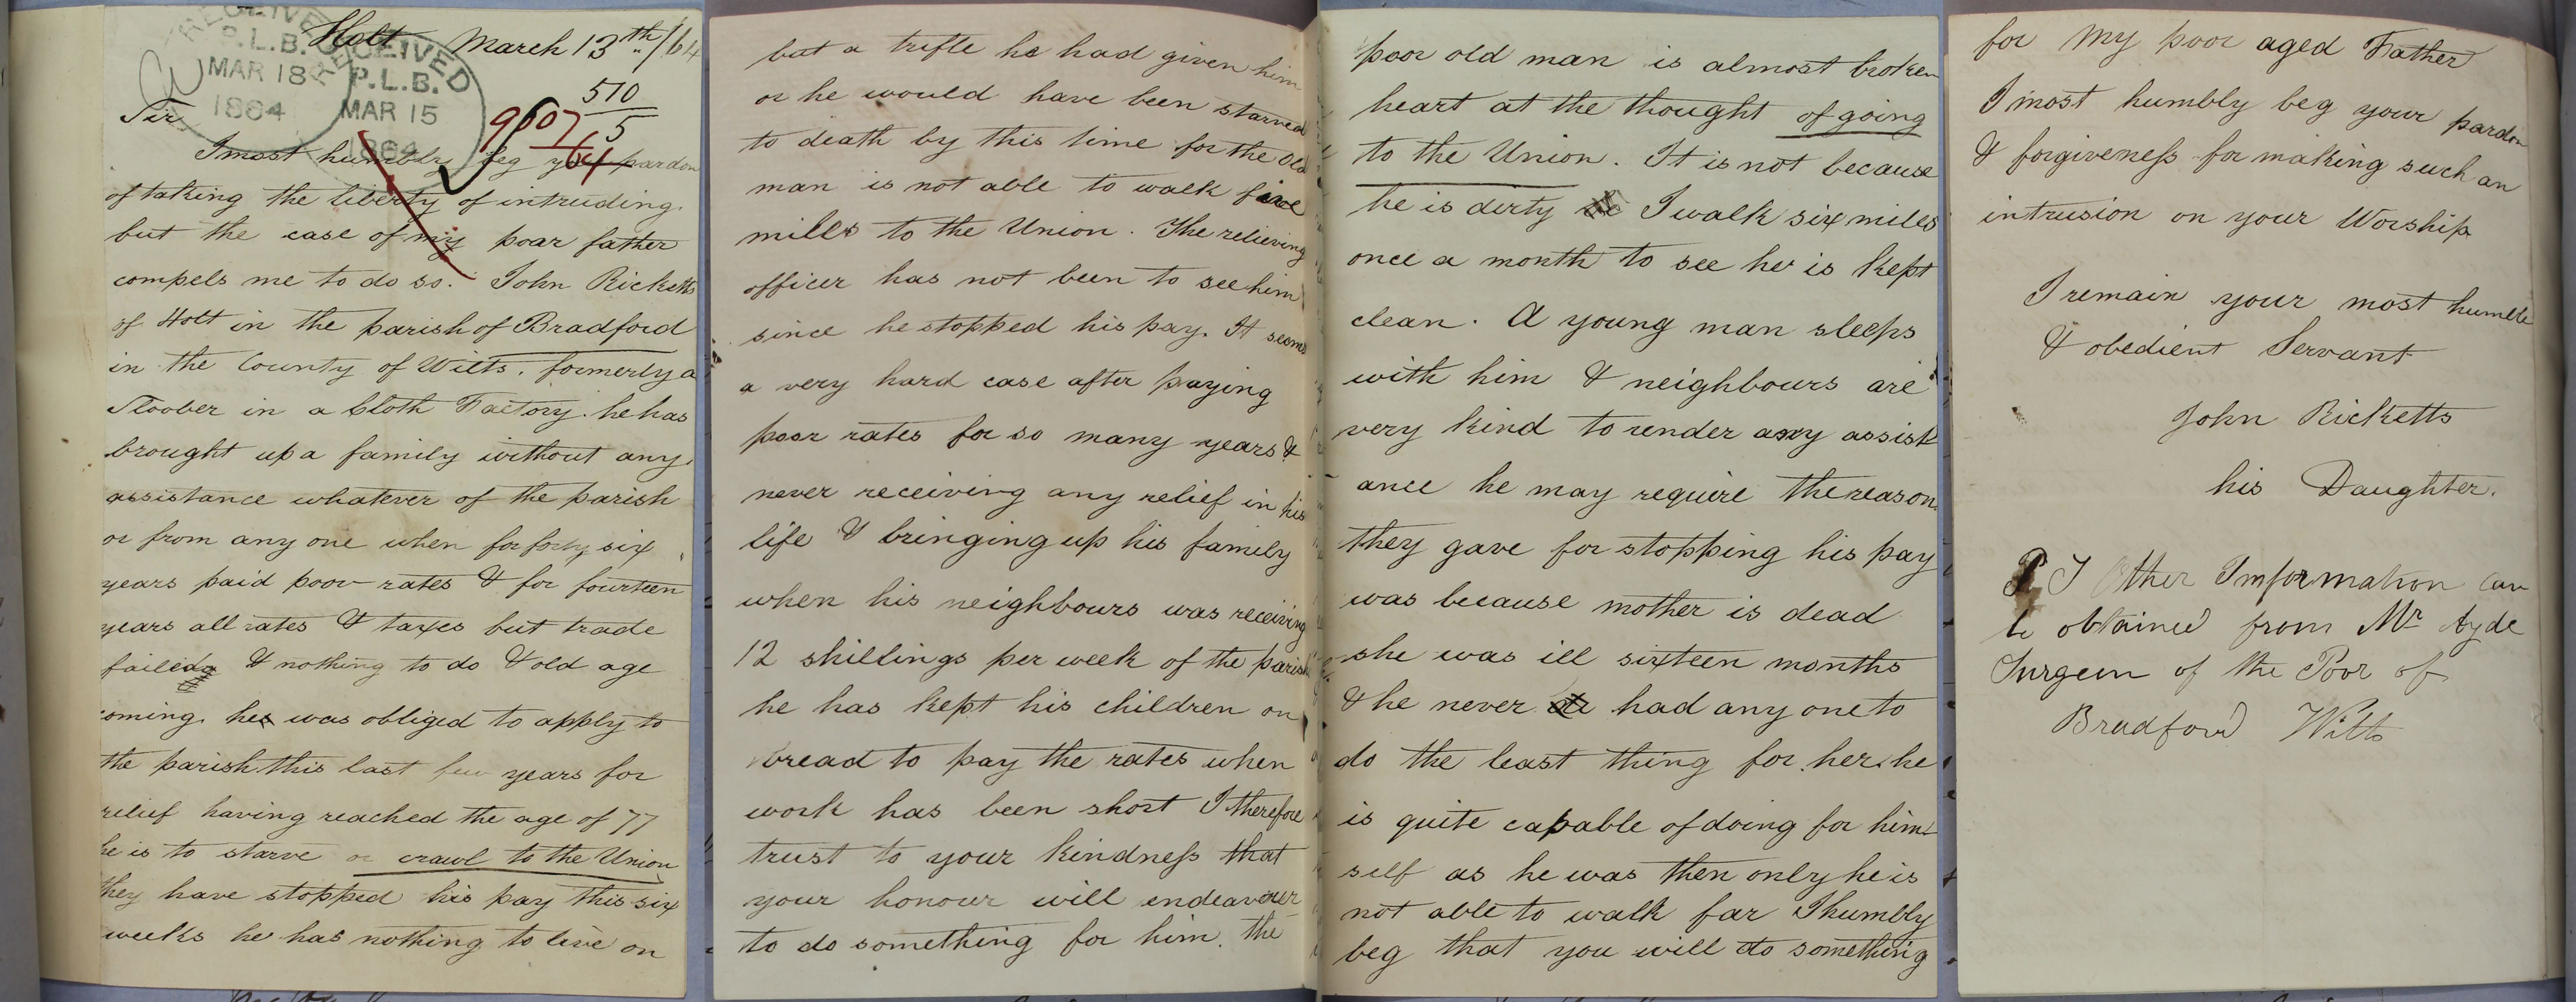 Holt March 13th /64
RECEIVED
P.L.B.
MAR 18
1864
RECEIVED
P.L.B.
MAR 15
1864
510
5
9607
64
Sir
I most humbly beg your pardon
of taking the liberty of intruding.
but the case of my poar father
compels me to do so. John Ricketts
of Holt in the parish of Bradford
in the County of Wilts. formerly a
Sloober in a Cloth Factory. he has
brought up a family without any
assistance whatever of the parish
or from any one when for forty six
years paid poor rates & for fourteen
years all rates & taxes but trade
failed & nothing to do & old age
coming. he was obliged to apply to
the parish this last few years for
relief having reached the age of 77
he is to starve or crawl to the Union
they have stopped his pay this six
weeks he has nothing to live on
but a trifle he had given him
or he would have been starved
to death by this time for the old
man is not able to walk five
miles to the Union. The relieving
officer has not been to see him
since he stopped his pay. It seems
a very hard case after paying
poor rates for so many years &
never receiving any relief in his
life & bringing up his family
when his neighbours was receiving
12 shillings per week of the parish
he has kept his children on
bread to pay the rates when
work has been short I therefore
trust to your kindness that
your honour will endeavour
to do something for him. the
poor old man is almost broken
heart at the thought of going
to the Union. It is not because
he is dirty I walk six miles
once a month to see he is kept
clean. A young man sleeps
with him & neighbours are
very kind to render any assist
ance he may require the reason
they gave for stopping his pay
was because mother is dead
she was ill sixteen months
& he never had any one to
do the least thing for her he
is quite capable of doing for him
self as he was then only he is
not able to walk far I humbly
beg that you will do something
for my poor aged Father
I most humbly beg your pardon
& forgiveness for making such an
intrusion on your Worship
I remain your most humble
& obedient Servant
John Ricketts
his Daughter.
Other Information can
be obtained from Mr Ayde
Surgeon of the Poor of
Bradford Wilts